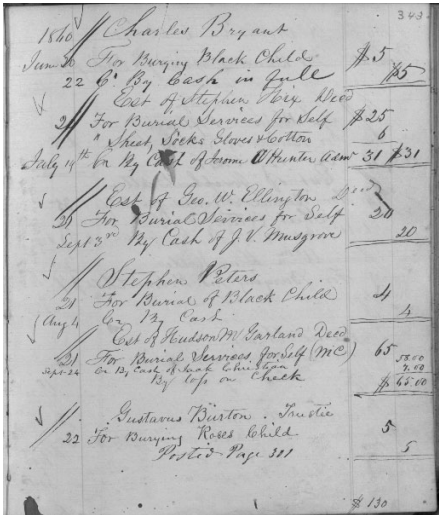 343
1860 Charles Bryant
June 20 For Burying Black Child $5
22 Cr By Cash in full $5
Est of Stephen Hix Deed
21 For Burial Services for Self $25
" Sheet, Socks Gloves & Cotton 6
July 14th Cr By Cash of Jerome Hunter Admr 31 $31
Est of Geo. W. Ellington Deed
21 For Burial Services for Self 20
Sept 3rd By Cash of J. V. Musgrove 20
Stephen Peters
21 For Burial of Black Child 4
Aug 4 Cr By Cash 4
Est of Hudson M Garland Deed
21 For Burial Services for Self (MC) 65
Sept 24 Cr By Cash of Jack Christian 58.00
By loss on Check 7.00
$65.00
Gustavus Burton. Trustee
22 For Burying Roses Child 5
Posted Page 321 5
$130